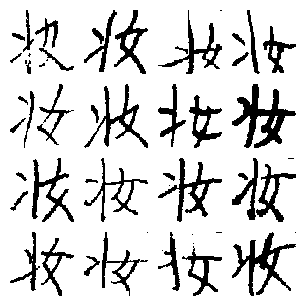 妆妆妆妆
妆妆妆妆
妆妆妆妆
妆妆妆妆